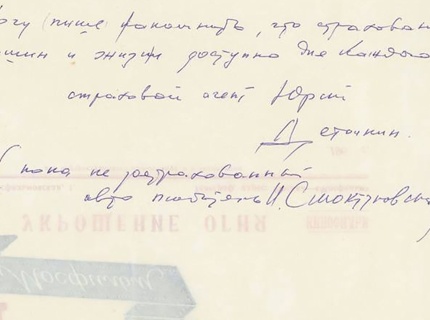 огу лишь напомнить, что страхован
шин и жизни доступно для каждого
страховой агент Юрий
Деточкин.
пока не застрахованный
авто любитель И. Смоктуновск
УКРОЩЕНИЕ ОГНЯ
Мосфильм